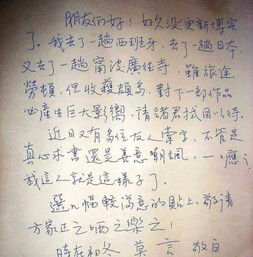 朋友们好！好久没更新博客
了。我去了一趟西班牙，去了一趟日本，
又去了一趟甯波廣德寺，雖旅途
勞頓，但收穫頗多，對下一部作品
也產生巨大影響，請諸君拭目以待。
近日又有多位友人索字，不管是
真心求書還是善意嘲諷，一一應之
我這人就是這樣子了。
選几幅較滿意的貼上，敬请
方家正之哂之樂之！
時在初冬 莫言 敬白